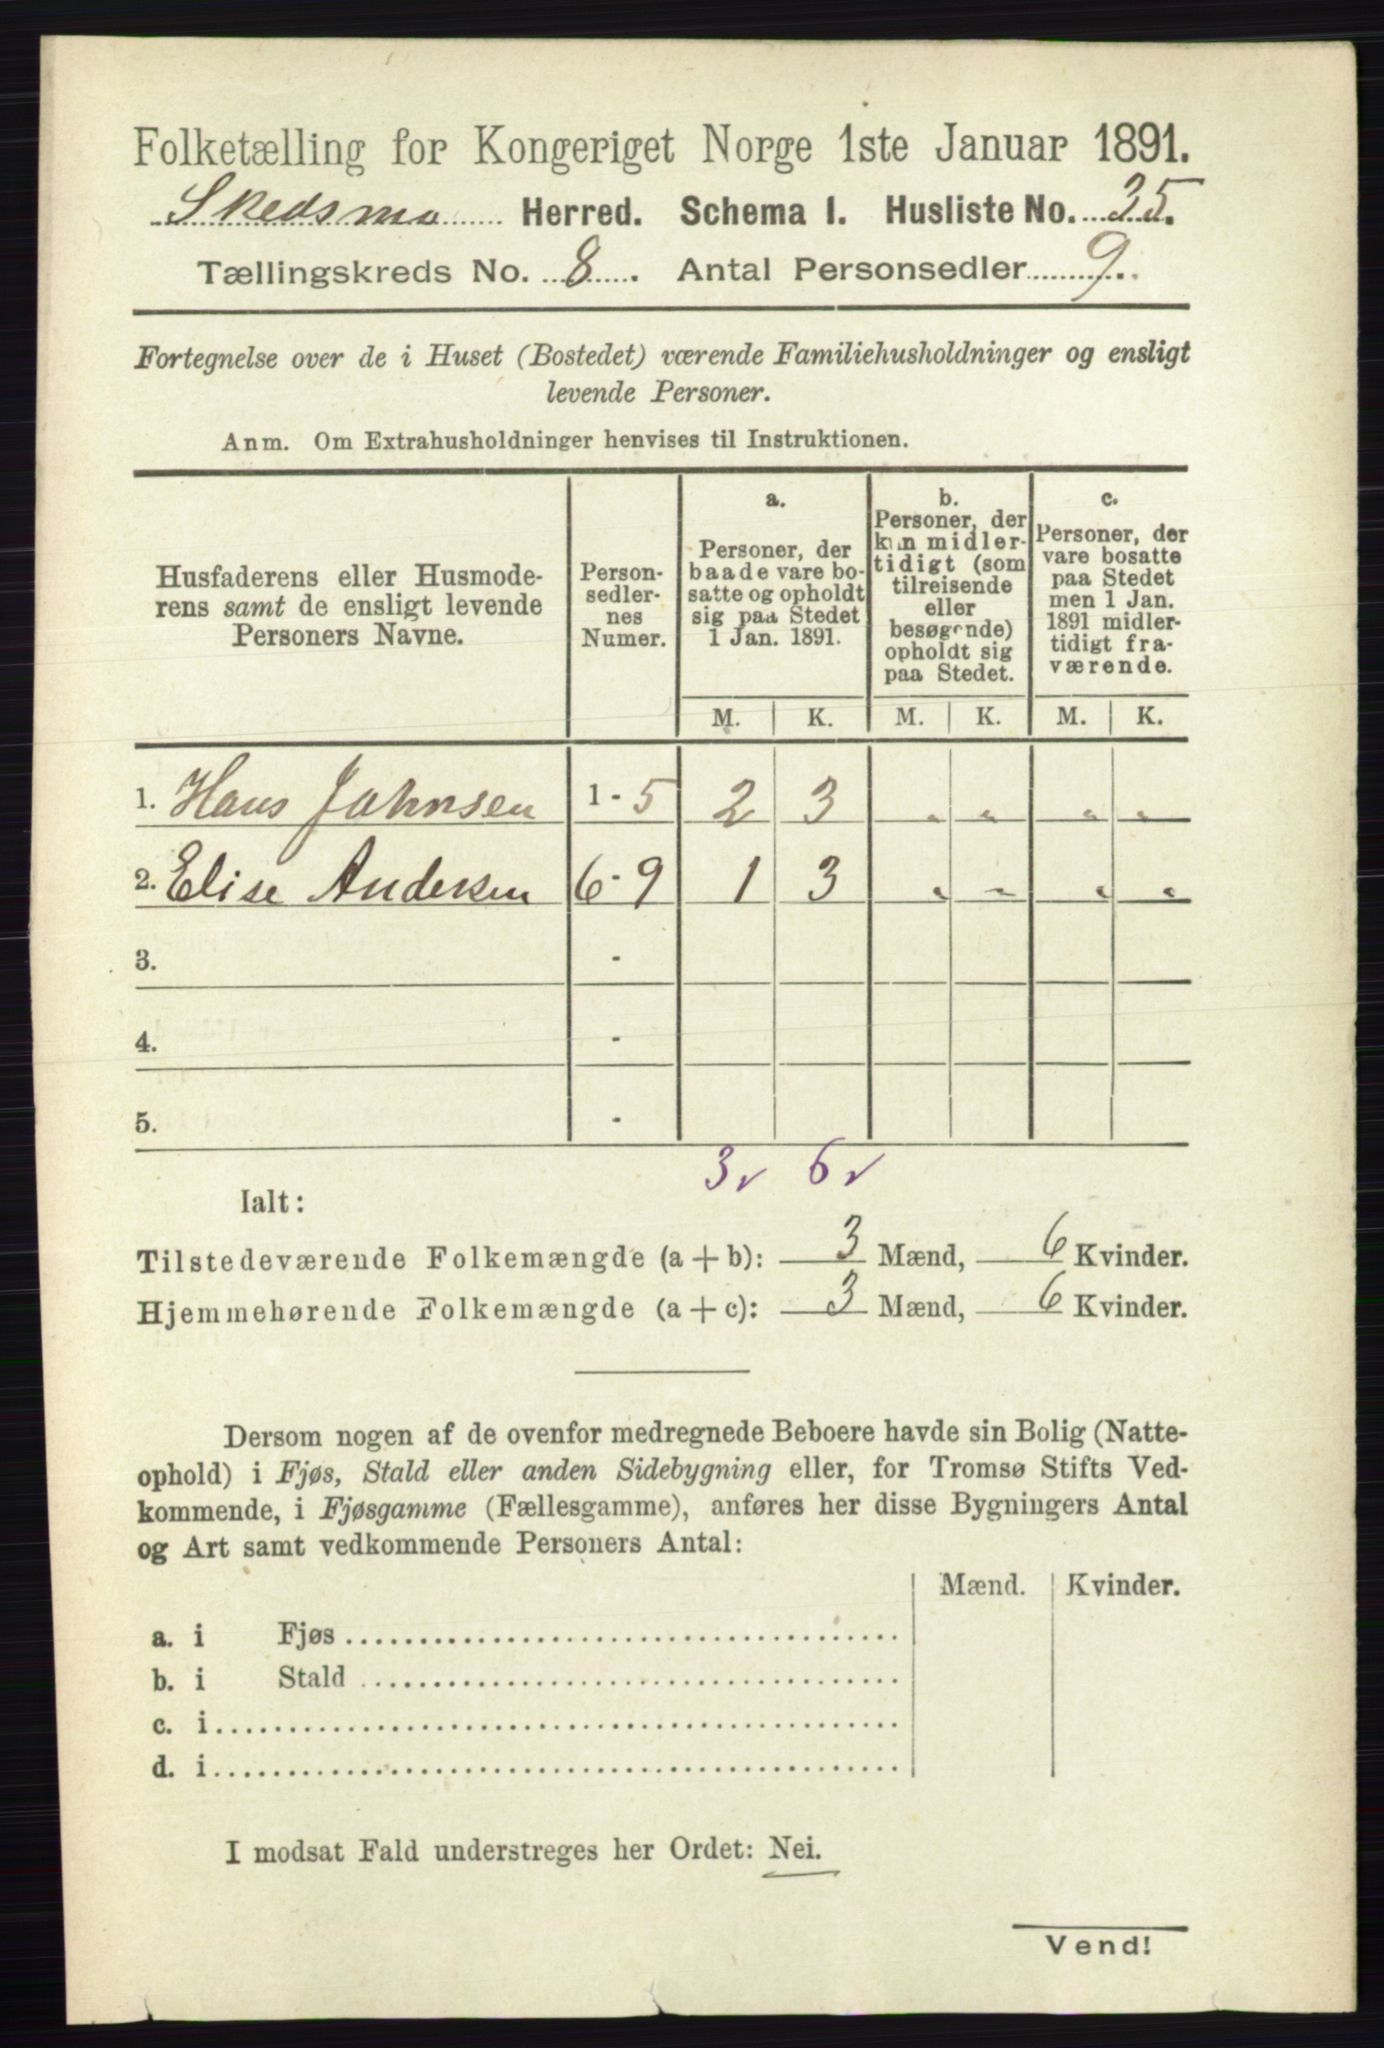 Folketælling for Kongeriget Norge 1ste Januar 1891.
Skedsmo Herred. Schema I. Husliste No. 35.
Tællingskreds No. 8. Antal Personsedler 9.
Fortegnelse over de i Huset (Bostedet) værende Familiehusholdninger og ensligt
levende Personer.
Anm. Om Extrahusholdninger henvises til Instruktionen.
Husfaderens eller Husmode-
rens samt de ensligt levende
Personers Navne.
Person-
sedler-
nes
Numer.
a.
Personer, der
baade vare bo-
satte og opholdt
sig paa Stedet
1 Jan. 1891.
b.
Personer, der
kun midler-
tidigt (som
tilreisende
eller
besøgende)
opholdt sig
paa Stedet.
c.
Personer, der
vare bosatte
paa Stedet
men 1 Jan.
1891 midler-
tidigt fra-
værende.
M. K. M. K. M. K.
1. Hans Johnsen 1 - 5 2 3 " " " "
2. Elise Andersen 6 - 9 1 3 " " " "
3. -
4. -
5. -
3 v 6 v
Ialt:
Tilstedeværende Folkemængde (a + b): 3 Mænd, 6 Kvinder.
Hjemmehørende Folkemængde (a + c): 3 Mænd, 6 Kvinder.
Dersom nogen af de ovenfor medregnede Beboere havde sin Bolig (Natte-
ophold) i Fjøs, Stald eller anden Sidebygning eller, for Tromsø Stifts Ved-
kommende, i Fjøsgamme (Fællesgamme), anføres her disse Bygningers Antal
og Art samt vedkommende Personers Antal:
Mænd. Kvinder.
a. i Fjøs
b. i Stald
c. i
d. i
I modsat Fald understreges her Ordet: Nei.
Vend!